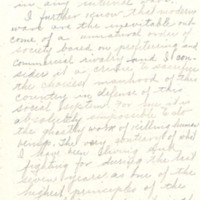 in any internal war.
I further know that modern
wars are the inevitable out-
come of a unnatural order of
society based on profiteering and
commercial rivalry and I con-
sider it a crime to sacrifice
the choicest manhood of this
country in defense of this
social system. For me it is
absolutely impossible to do
the ghastly work of killing human
beings. The very contrary of what
I have been living and
fighting for during the last
seven years as one of the
highest principles of the